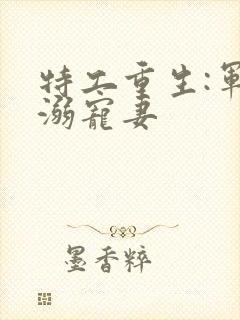 特工重生:軍
溺寵妻
墨香粹